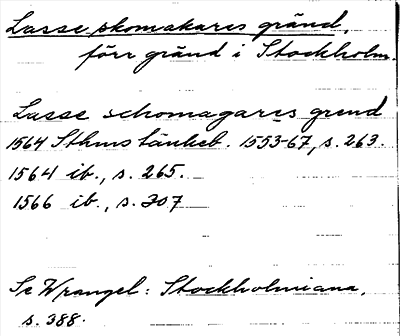 Lasse skomakares gränd,
förr gränd i Stockholm.
Lasse schomagares grend
1564 Sthms tänkeb. 1553-67, s. 263.
1564 ib., s. 265.
1566 ib., s. 307
Se Wrangel: Stockholmiana,
s. 388.